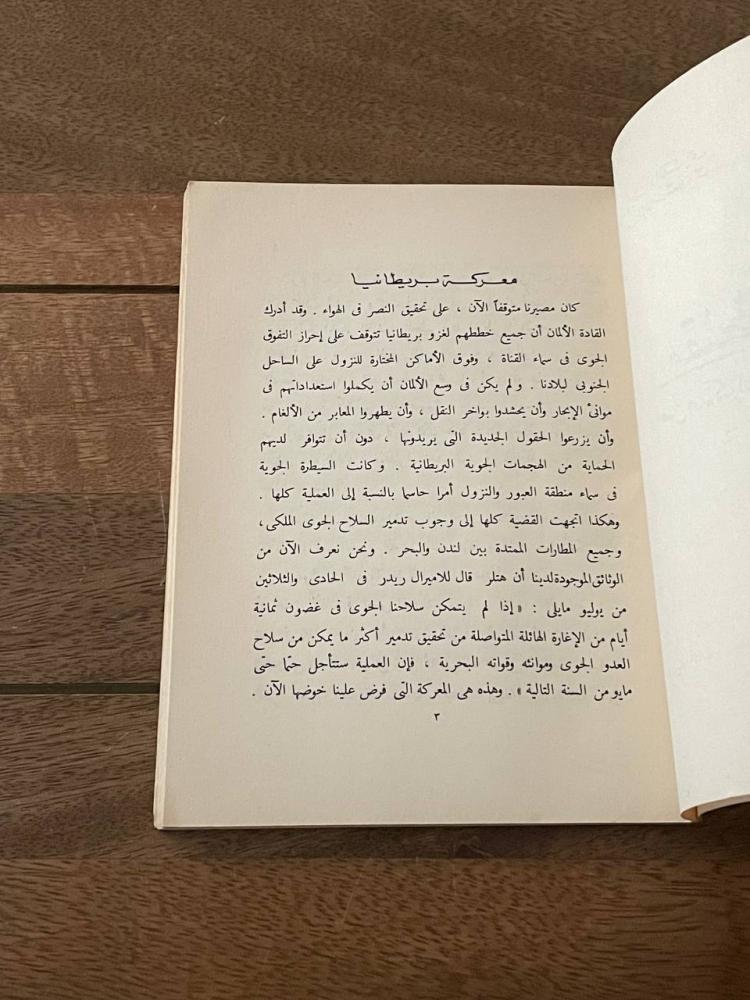 معركة بريطانيا
كان مصيرنا متوقفاً الآن ، على تحقيق النصر فى الهواء . وقد أدرك
القادة الألمان أن جميع خططهم لغزو بريطانيا تتوقف على إحراز التفوق
الجوى فى سماء القناة ، وفوق الأماكن المختارة للنزول على الساحل
الجنوبى لبلادنا . ولم يكن فى وسع الألمان أن يكملوا استعداداتهم فى
موانئ الإبحار وأن يحشدوا بواخر النقل ، وأن يطهروا المعابر من الألغام .
وأن يزرعوا الحقول الجديدة التى يريدونها ، دون أن تتوافر لديهم
الحماية من الهجمات الجوية البريطانية . وكانت السيطرة الجوية
فى سماء منطقة العبور والنزول أمرا حاسما بالنسبة إلى العملية كلها .
وهكذا اتجهت القضية كلها إلى وجوب تدمير السلاح الجوى الملكى ،
وجميع المطارات الممتدة بين لندن والبحر . ونحن نعرف الآن من
الوثائق الموجودة لدينا أن هتلر قال للاميرال ريدر فى الحادى والثلاثين
من يوليو مايلى : « إذا لم يتمكن سلاحنا الجوى فى غضون ثمانية
أيام من الإغارة الهائلة المتواصلة من تحقيق تدمير أكثر ما يمكن من سلاح
العدو الجوى وموانئه وقواته البحرية ، فإن العملية ستتأجل حتما حتى
مايو من السنة التالية » . وهذه هى المعركة التى فرض علينا خوضها الآن .
٣